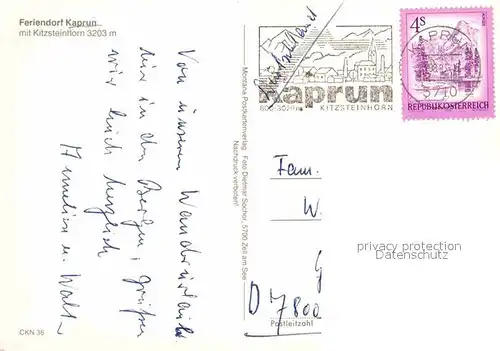 Feriendorf Kaprun
mit Kitzsteinhorn 3203 m
Von unserem Wanderurlaub
hier in den Bergen, grüßen
wir Euch herzlich
u. Walter
CKN 36
Montana Postkartenverlag Foto Dietmar Sochor, 5700 Zell am See
Nachdruck verboten!
Kaprun
800-3029m KITZSTEINHORN
4S
5710
REPUBLIK ÖSTERREICH
Fam.
W.
G
D 7800
Postleitzahl
privacy protection
Datenschutz